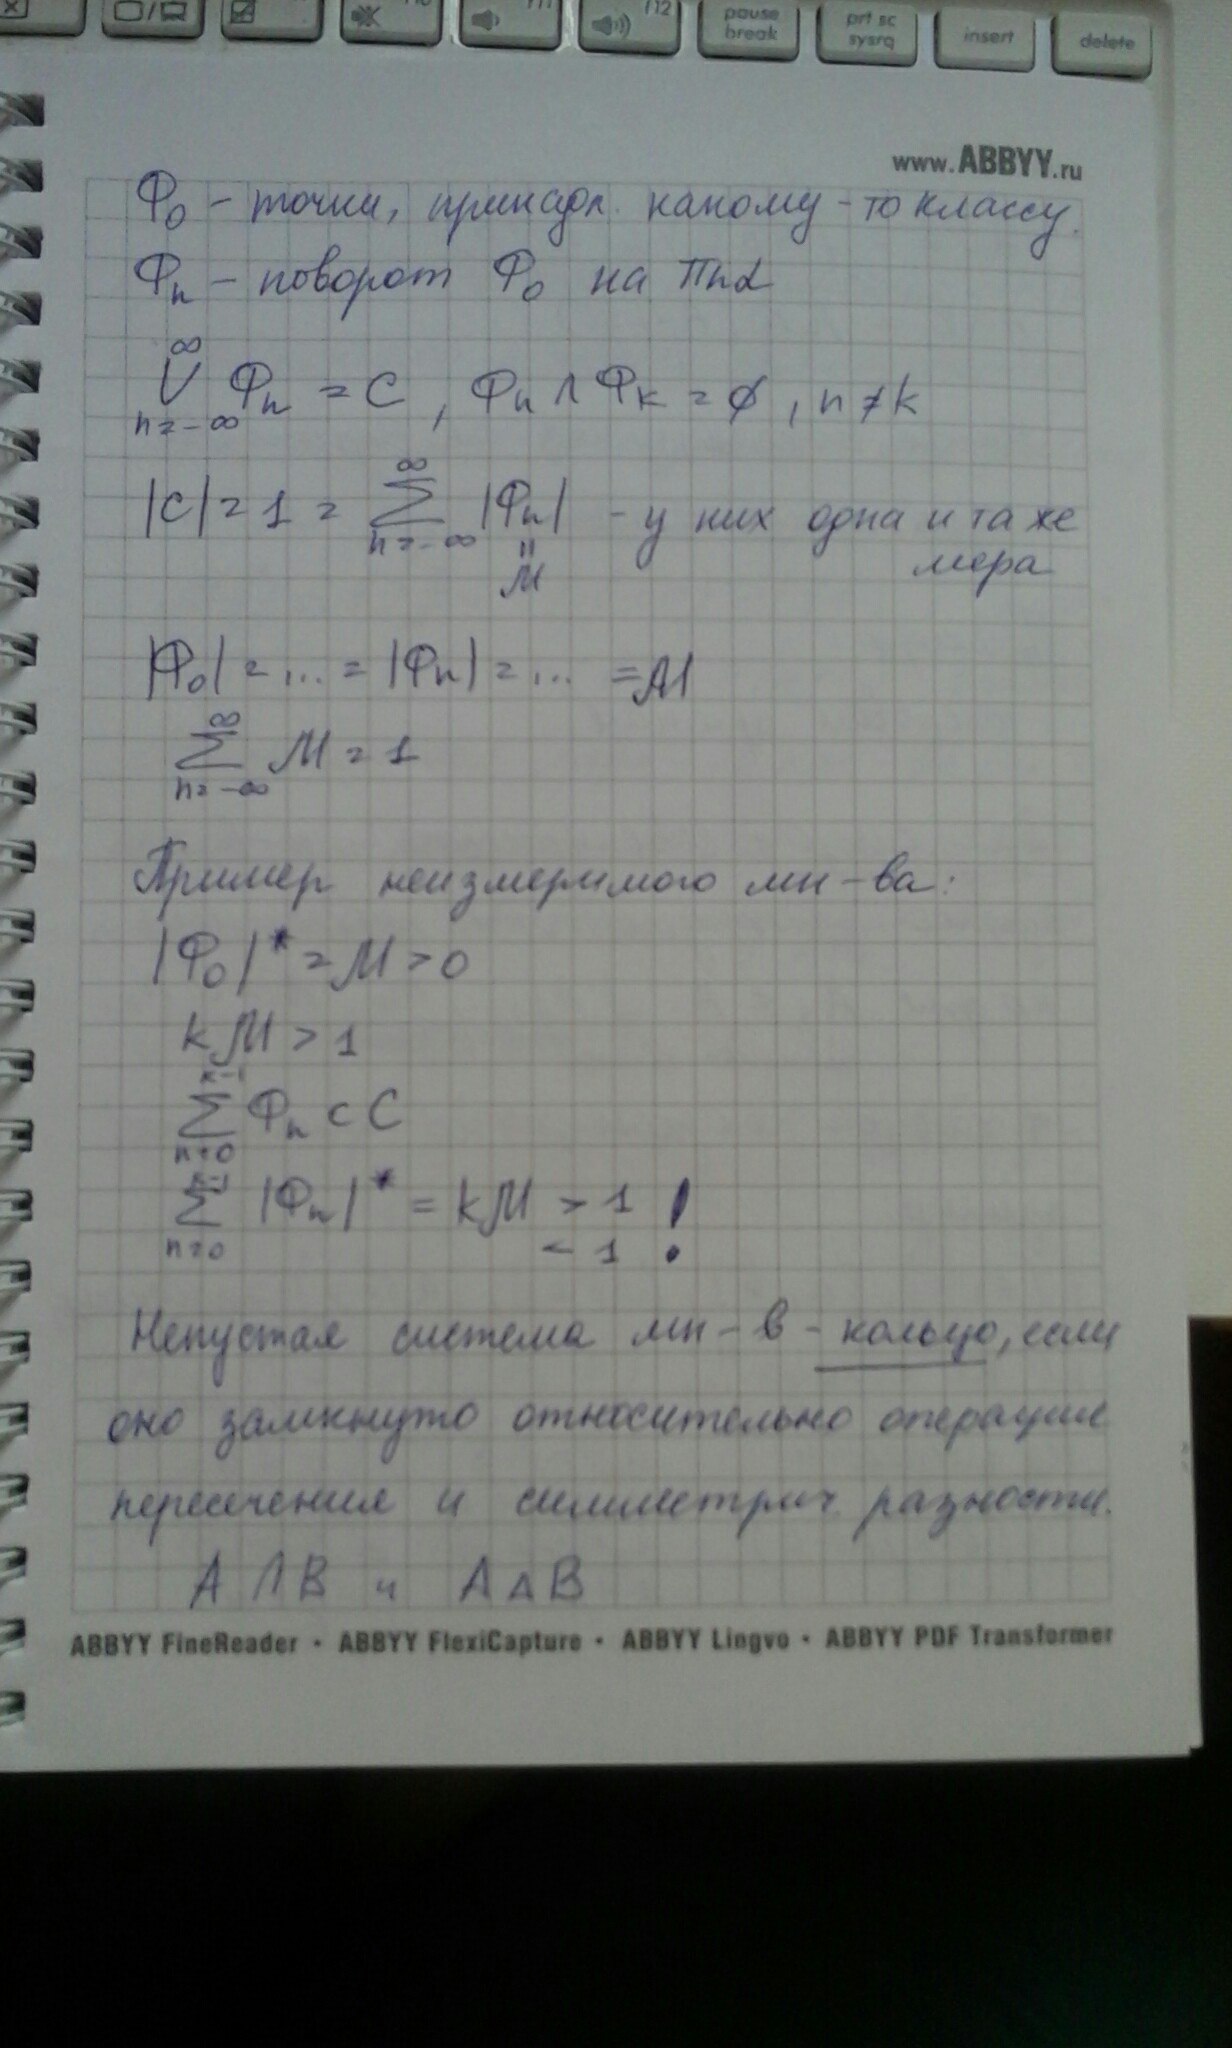 F11
F12
pause break
prt sc sysrq
insert
delete
www.ABBYY.ru
Φ₀ – точки, принадл. какому-то классу.
Φₙ – поворот Φ₀ на πnα
∞
∪ Φₙ = C, Φₙ ∩ Φₖ = ∅, n ≠ k
n=-∞
∞
|C| = 1 = Σ |Φₙ| – у них одна и та же
n=-∞ = M мера
|Φ₀| = ... = |Φₙ| = ... = M
∞
Σ M = 1
n=-∞
Пример неизмеримого мн-ва:
|Φ₀|* = M > 0
kM > 1
k-1
Σ Φₙ ⊂ C
n=0
k-1
Σ |Φₙ|* = kM > 1 !
n=0 < 1
Непустая система мн-в – кольцо, если
оно замкнуто относительно операции
пересечения и симметрич. разности.
A ∩ B и A Δ B
ABBYY FineReader • ABBYY FlexiCapture • ABBYY Lingvo • ABBYY PDF Transformer